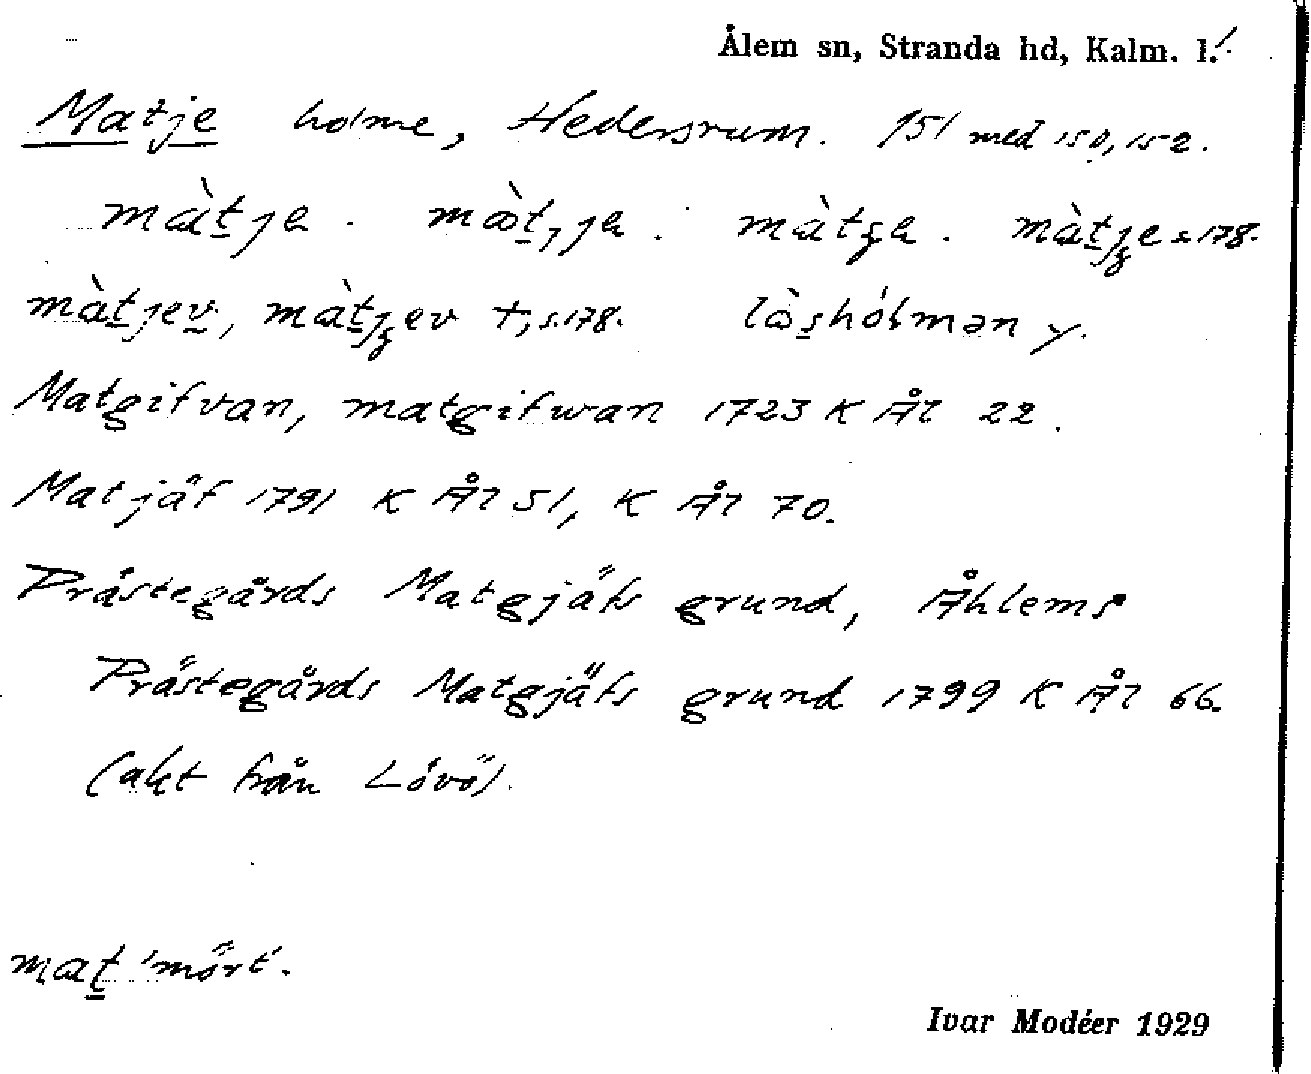 Ålem sn, Stranda hd, Kalm. l.
Matje holme, Hedersrum. 151 med 150, 152.
màtja. màt,ja. màtʒa. màtjʒe s. 178.
màtjev, màtjʒev †, s. 178. làshólmən y.
Matgifvan, matgifwan 1723 K Ål 22.
Matjäf 1791 K Ål 51, K Ål 70.
Prästegårds Matgjäfs grund, Åhlems
Prästegårds Matgjäfs grund 1799 K Ål 66.
(akt från Lövö).
mat 'mört'.
Ivar Modéer 1929